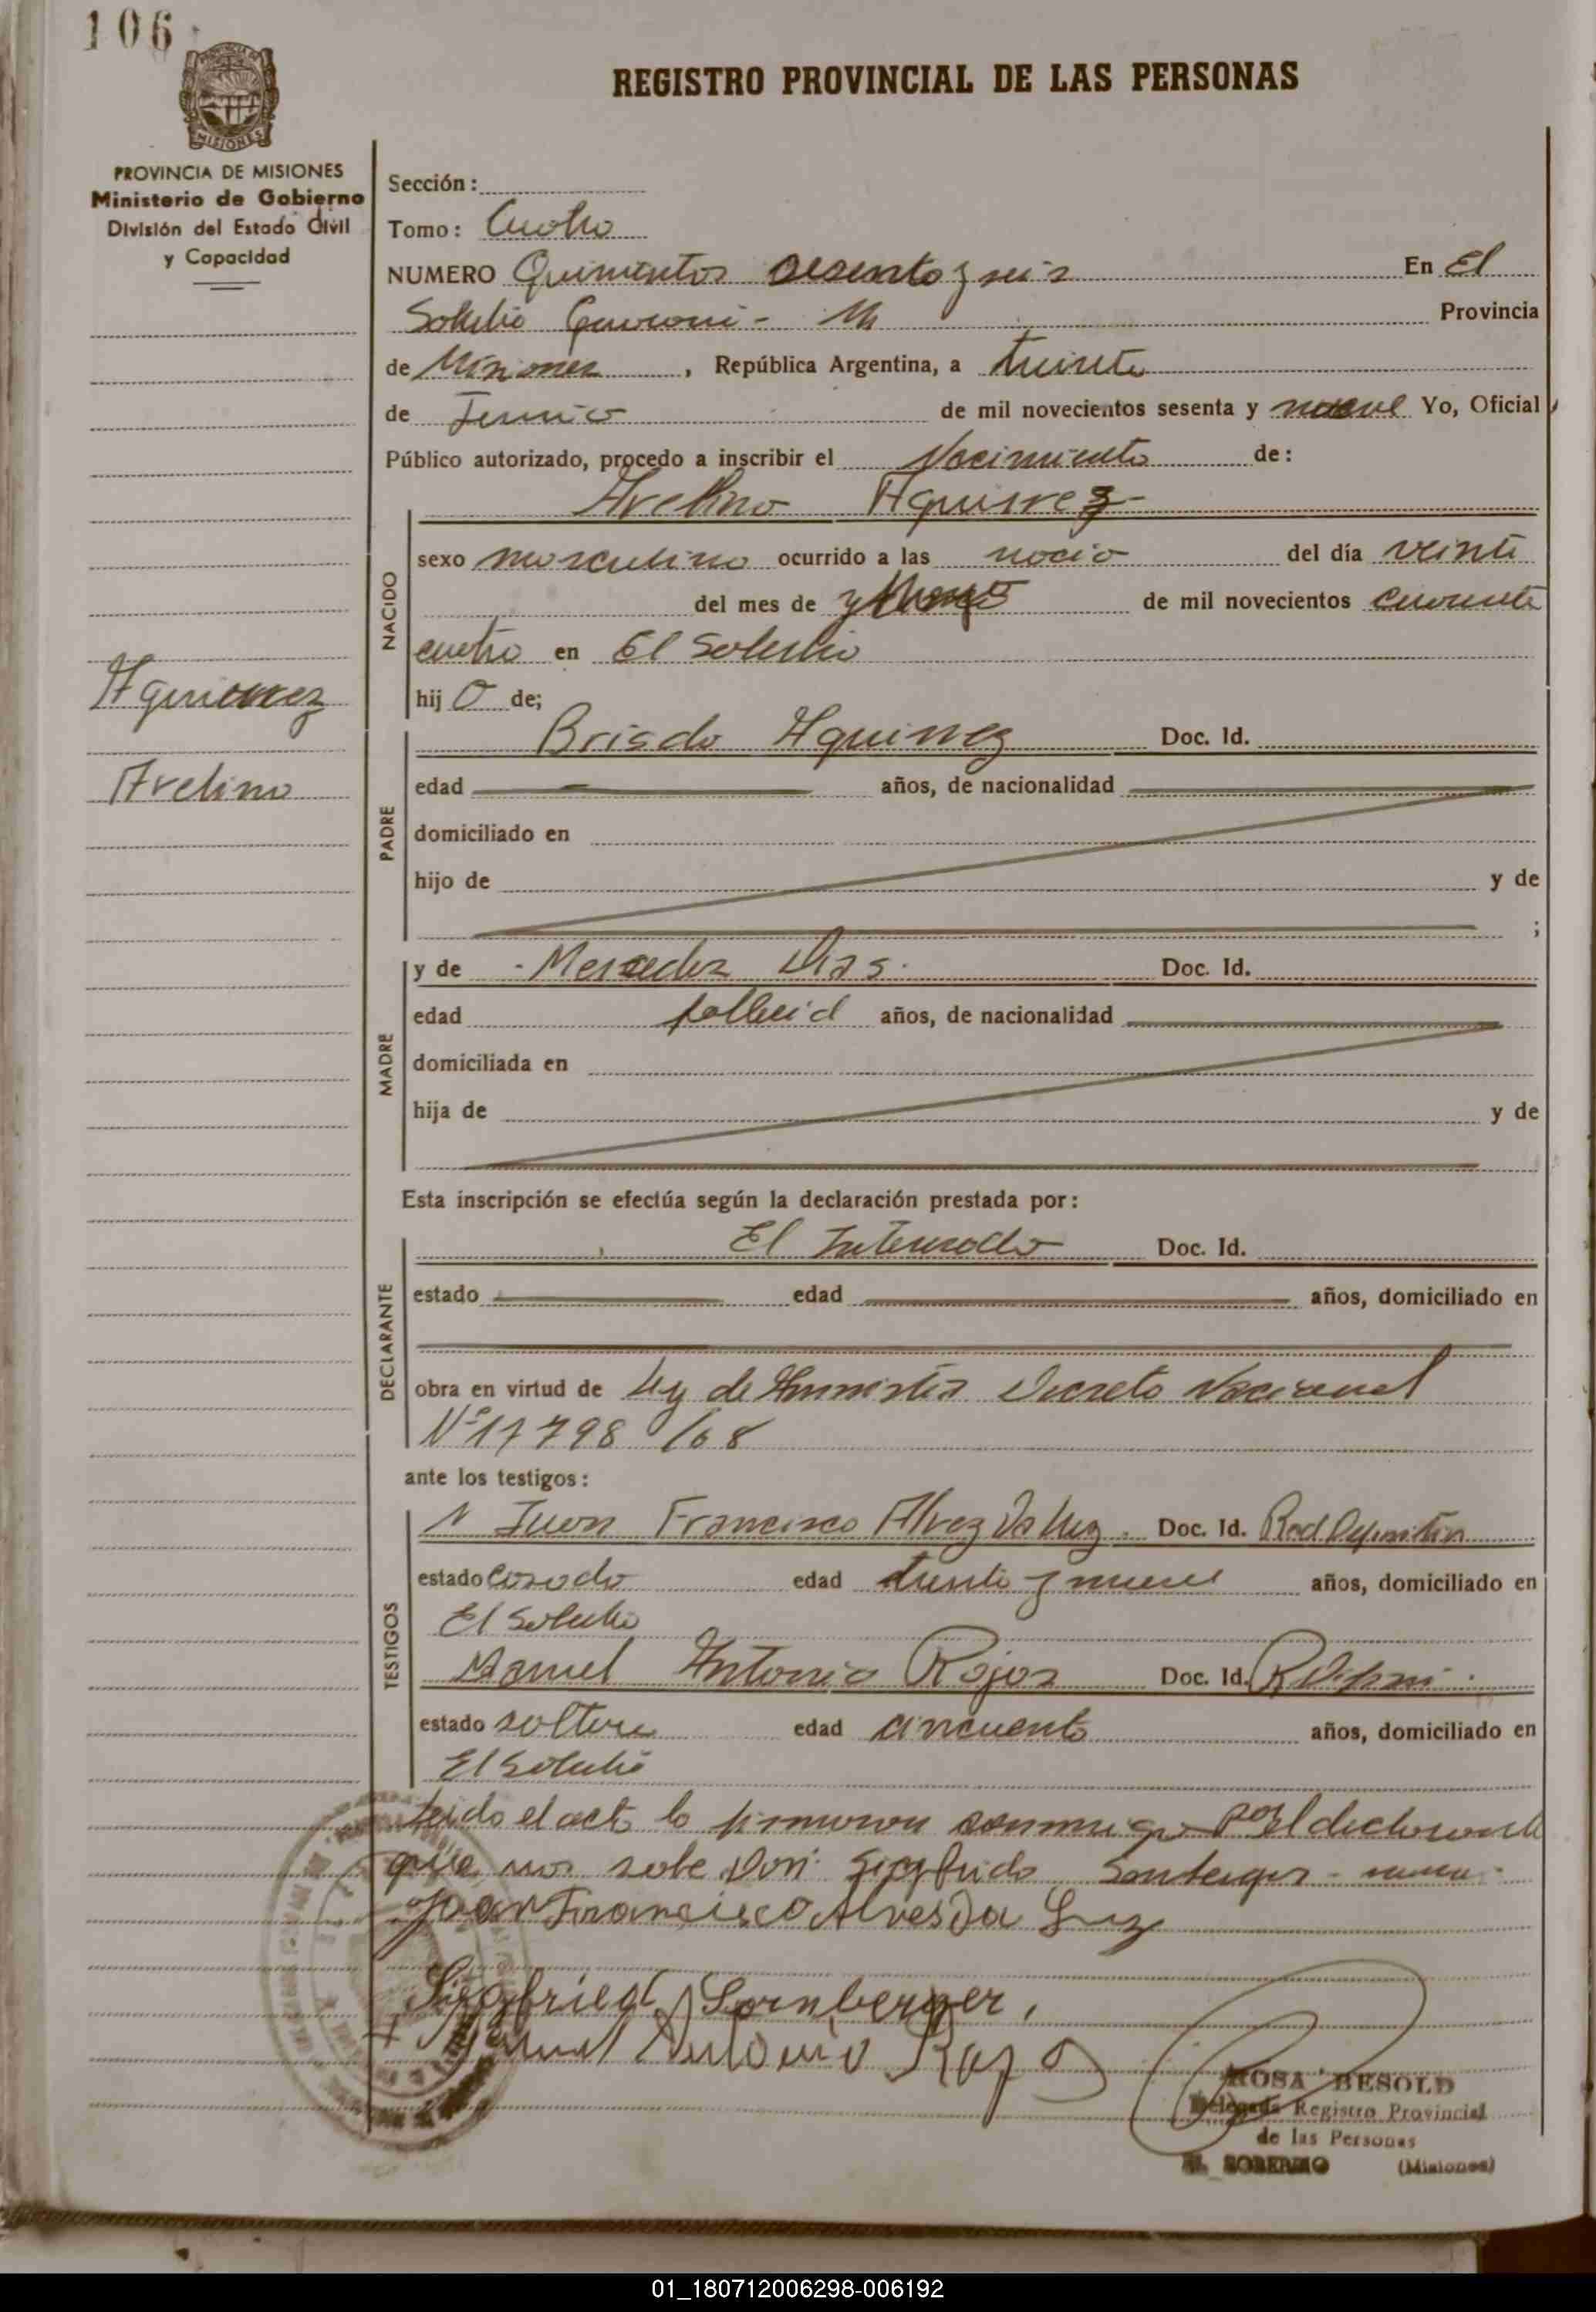 106
MISIONES
REGISTRO PROVINCIAL DE LAS PERSONAS
PROVINCIA DE MISIONES
Ministerio de Gobierno
División del Estado Civil
y Capacidad
Sección:
Tomo: Cuatro
NUMERO Quinientos sesenta y seis En El
Soberbio Guaraní -
Provincia
de Misiones, República Argentina, a treinta
de Junio de mil novecientos sesenta y nueve Yo, Oficial
Público autorizado, procedo a inscribir el Nacimiento de:
Avelino Aguirrez
NACIDO
sexo masculino ocurrido a las nació del día veinti
del mes de de mil novecientos cuarenta
cuatro en El Soberbio
hijo de;
Aguirrez
Avelino
PADRE
Brisdo Aguirrez Doc. Id.
edad años, de nacionalidad
domiciliado en
hijo de y de
;
MADRE
y de - Mercedez Dias. Doc. Id.
edad fallecid años, de nacionalidad
domiciliada en
hija de y de
Esta inscripción se efectúa según la declaración prestada por:
DECLARANTE
El Interesado Doc. Id.
estado edad años, domiciliado en
obra en virtud de Ley de Amnistia Decreto Nacional
Nº 17798/68
ante los testigos:
TESTIGOS
Juan Francisco Alvez Da Luz. Doc. Id.
estado Casado edad treinta y nueve años, domiciliado en
El Soberbio
Manuel Antonio Rojas Doc. Id.
estado soltero edad cincuenta años, domiciliado en
El Soberbio
Leido el acta la firmaron conmigo por el declarante
que no sabe Don Sigfrido
Joan Francisco Alves Da Luz
Siegfried Sornberger,
+ Manuel Antonio Rojas
ROSA BESOLD
Delegada Registro Provincial
de las Personas
EL SOBERBIO (Misiones)
01_180712006298-006192